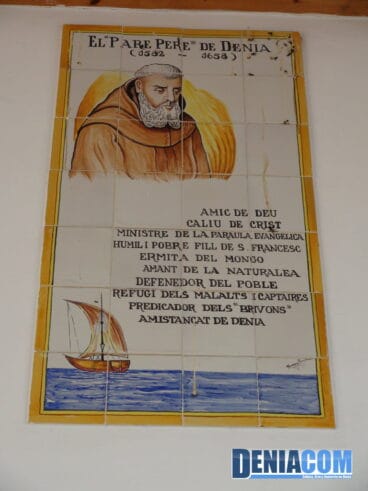 EL "PARE PERE" DE DENIA
(1582 - 1658)
AMIC DE DEU
CALIU DE CRIST
MINISTRE DE LA PARAULA EVANGELICA
HUMIL I POBRE FILL DE S. FRANCESC
ERMITA DEL MONGO
AMANT DE LA NATURALEA
DEFENEDOR DEL POBLE
REFUGI DELS MALALTS I CAPTAIRES
PREDICADOR DELS "BRIVONS"
AMISTANCAT DE DENIA
DENIACOM